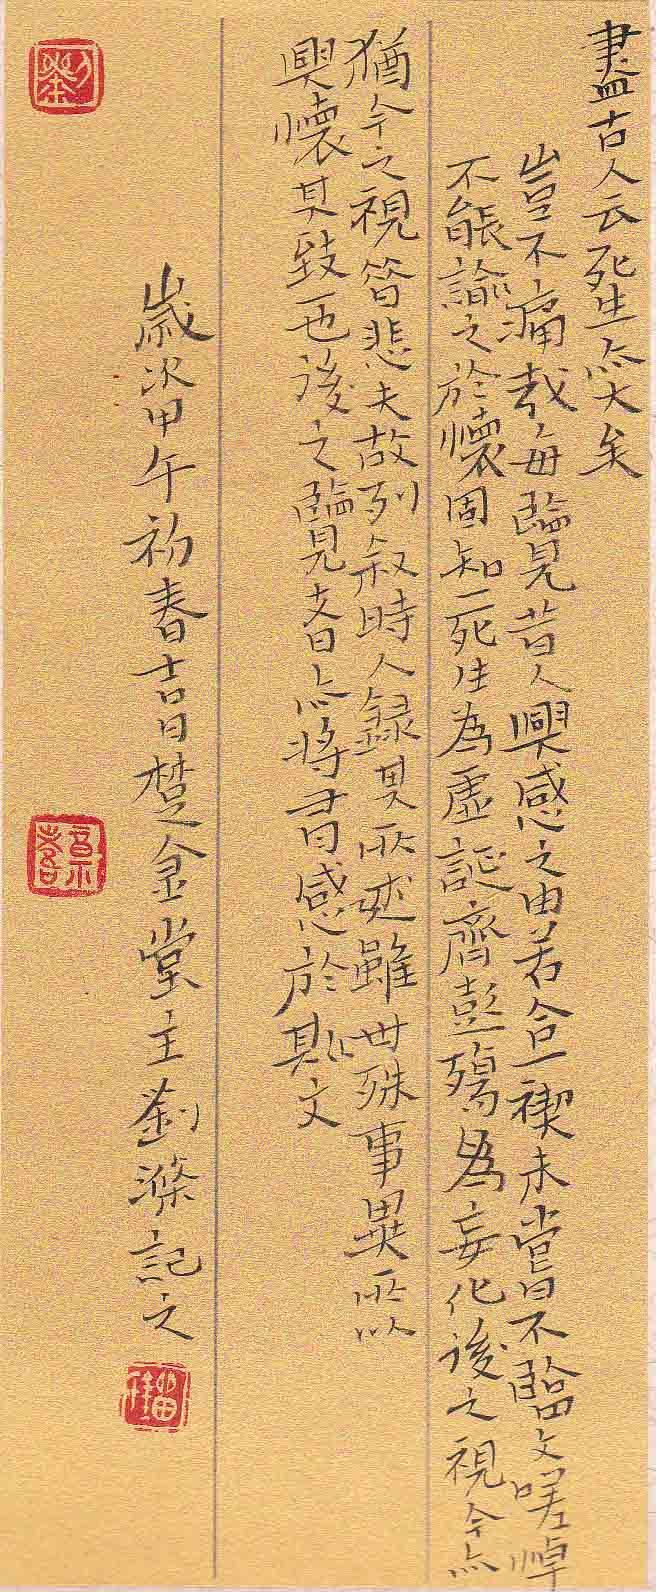 盡古人云死生亦大矣
豈不痛哉每臨見昔人興感之由若合一禊未嘗不臨文嗟悼
不能諭之於懷固知一死生為虛誕齊彭殤為妄化後之視今亦
猶今之視昔悲夫故列叙時人録其所述雖世殊事異所以
興懷其致一也後之臨見者亦將有感於斯文
歲次甲午初春吉日楚金堂主劉滌記之
劉